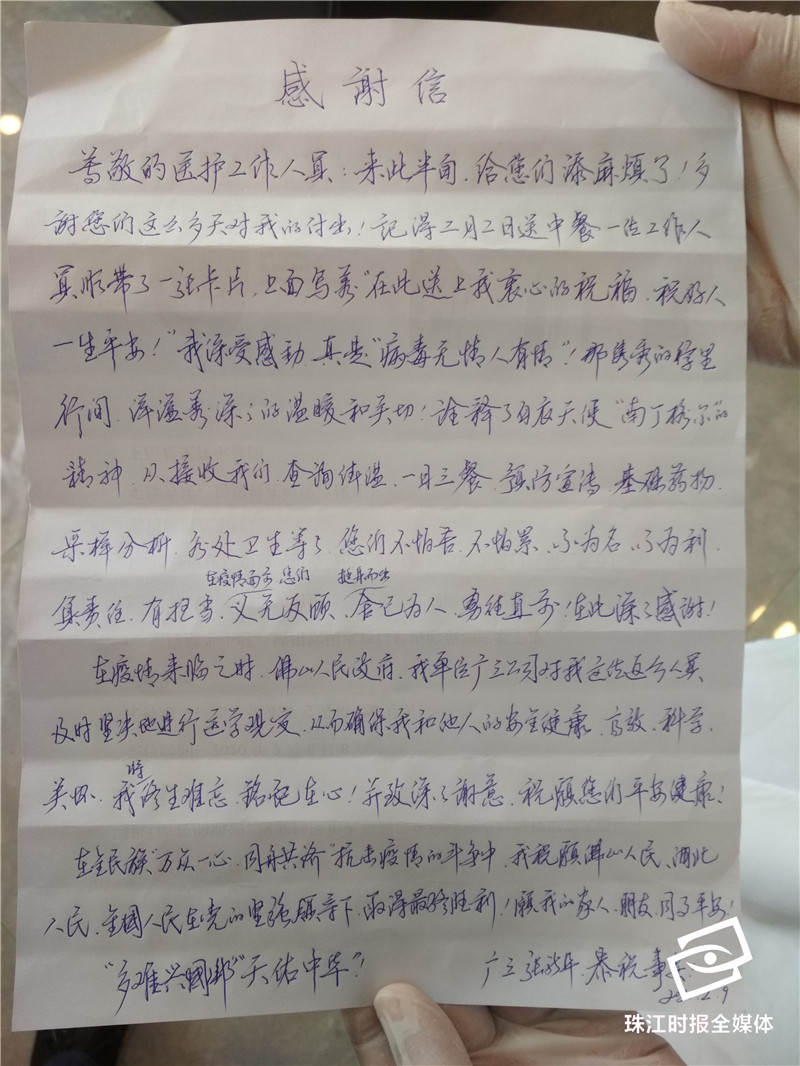 感謝信
尊敬的医护工作人員：来此半旬，给您们添麻烦了！多
謝您们这么多天对我的付出！記得二月二日送中餐一位工作人
員顺带了一张卡片，上面写着"在此送上我衷心的祝福，祝好人
一生平安！"我深受感动，真是"病毒无情人有情"！那隽秀的字里
行间，洋溢着深深的温暖和关切！诠释了白衣天使"南丁格尔"的
精神，从接收我们，查询体温，一日三餐，预防宣传，基础药物，
采样分析，各处卫生等等，您们不怕苦、不怕累、不为名、不为利，
在疫情面前 您们 挺身而出
負責任，有担当，义无反顾，舍已为人，勇往直前！在此深深感謝！
在疫情来临之时，佛山人民政府，我单位广三公司对我这位返岗人員
及时坚决地进行医学观察，从而确保我和他人的安全健康，高效、科学、
将
关怀，我终生难忘，铭记在心！并致深深謝意，祝願您们平安健康！
在全民族"万众一心，同舟共济"抗击疫情的斗争中，我祝願佛山人民、湖北
人民、全國人民在党的坚强領导下，取得最终胜利！願我的家人、朋友、同事平安！
"多难兴國邦""天佑中华"！
广三 张 恭祝
2.9
珠江时报全媒体